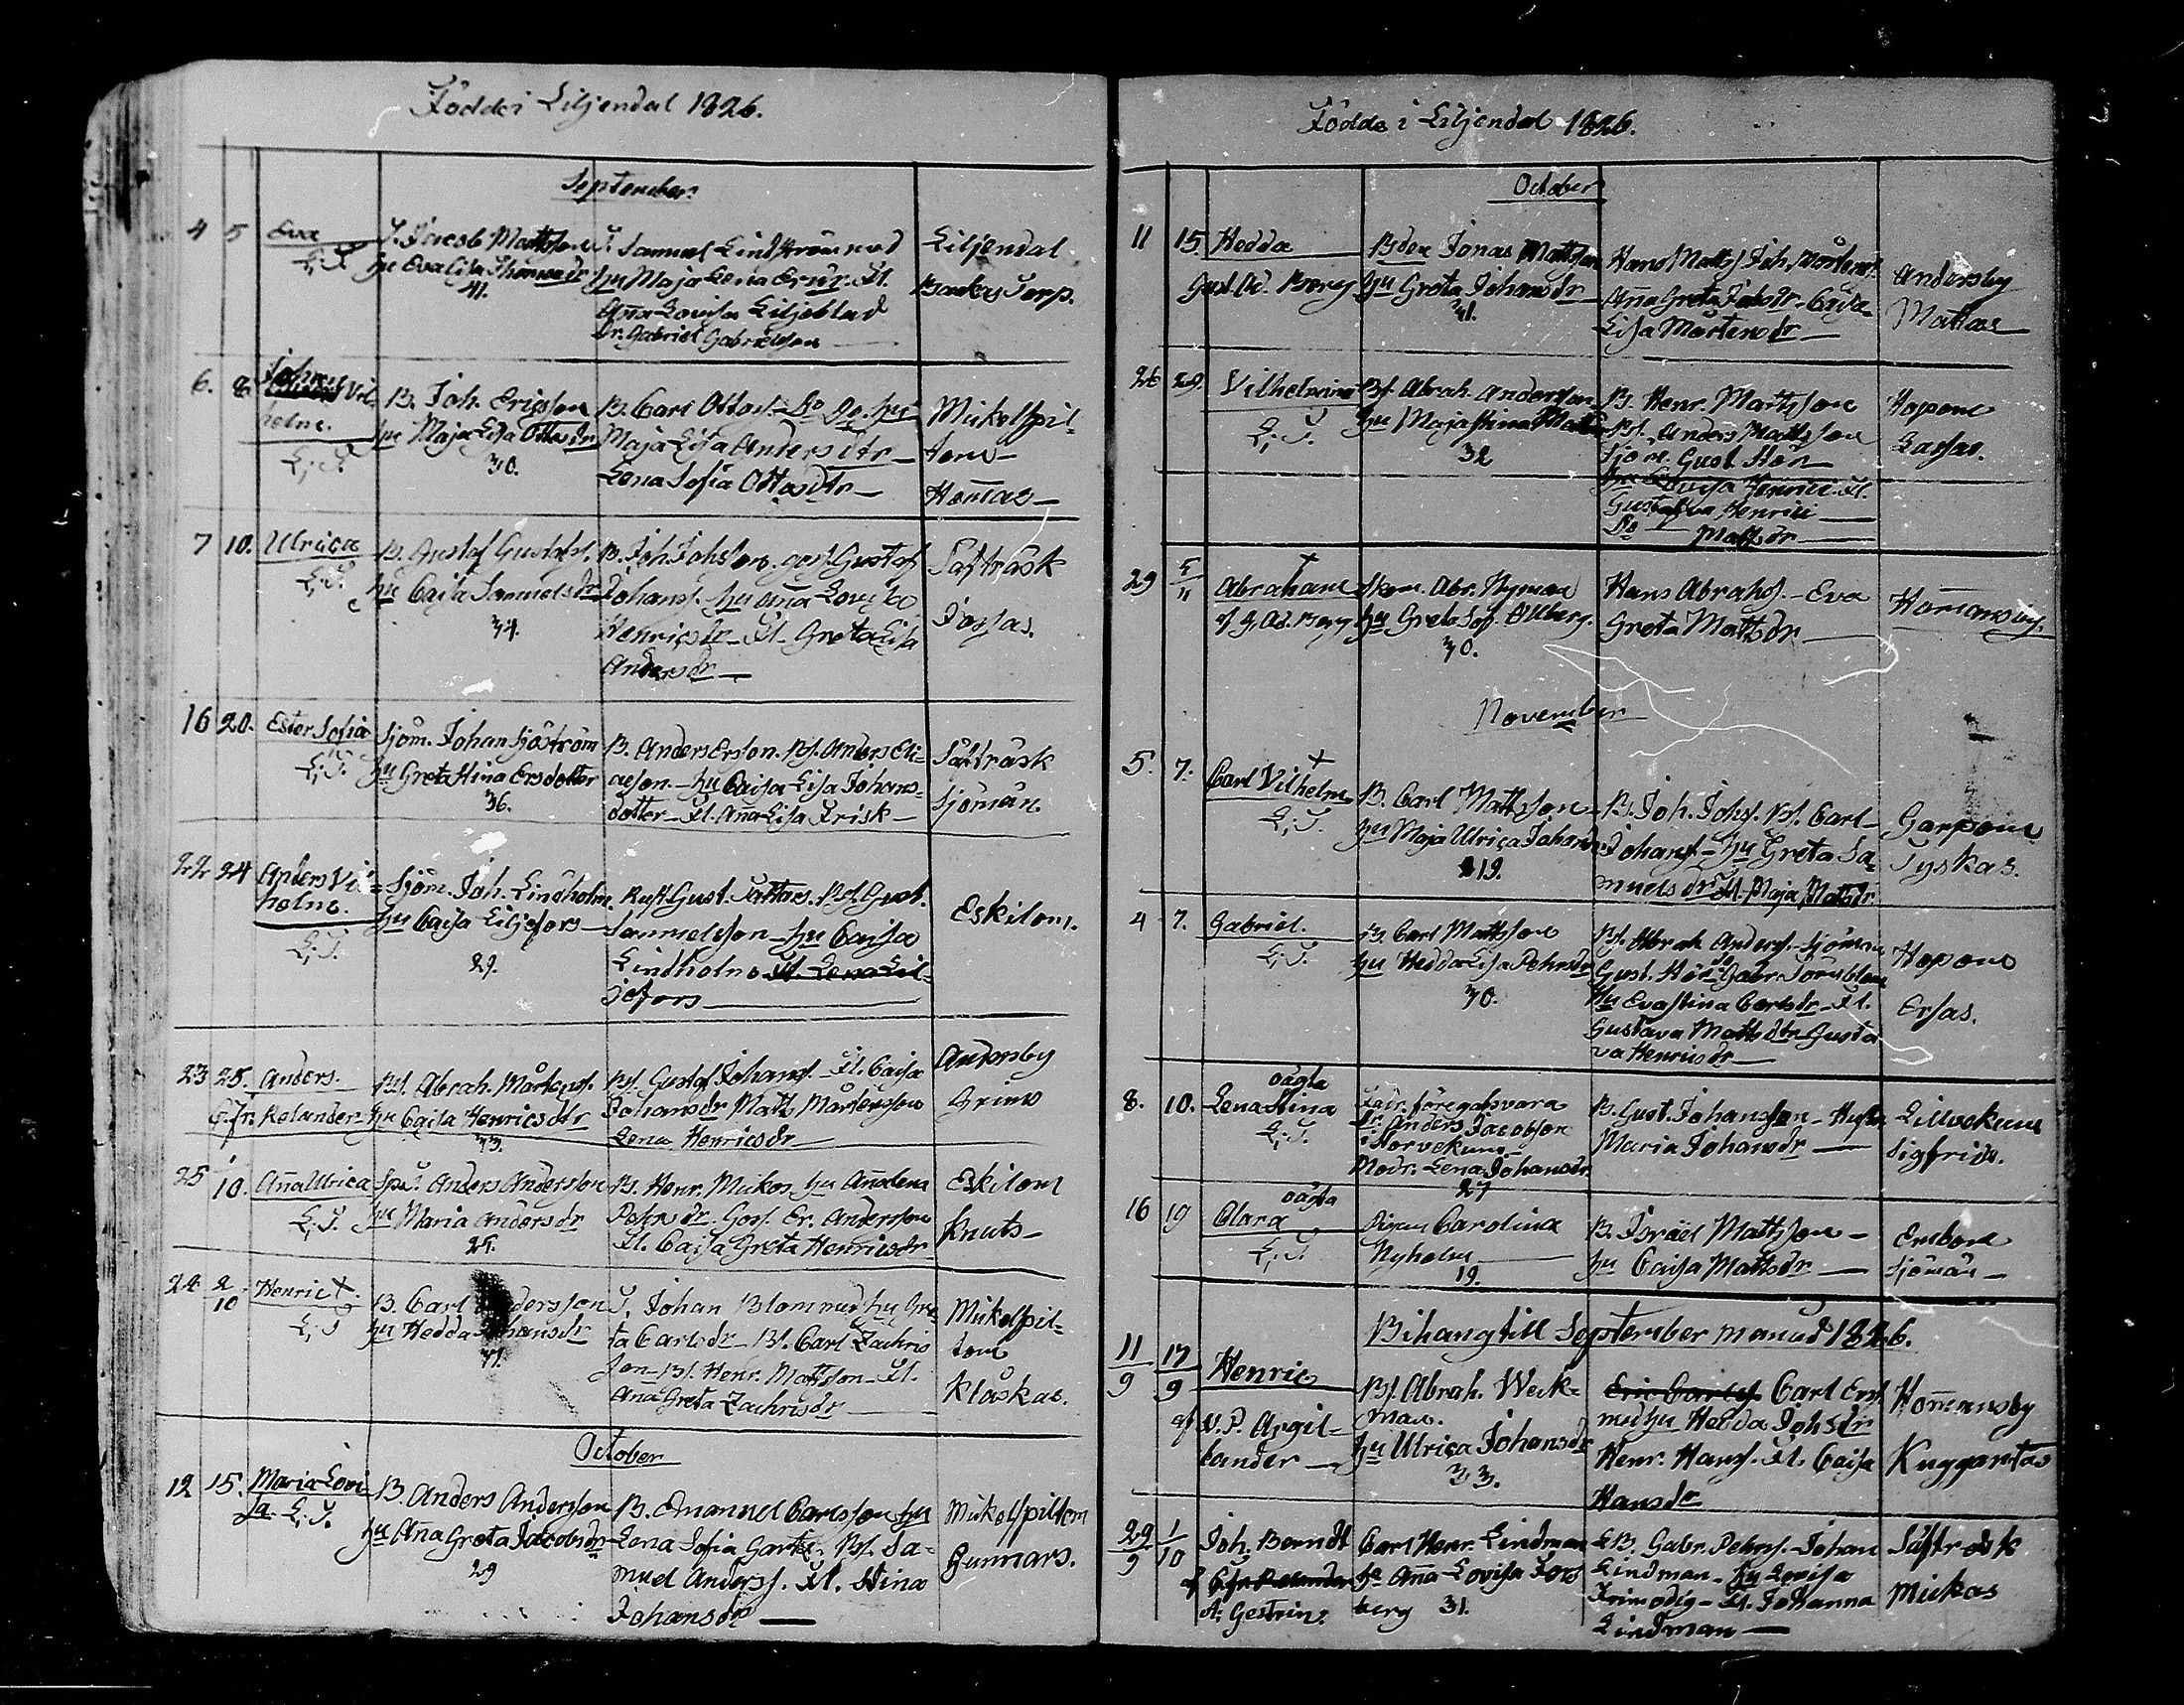 Födde i Liljendal 1826.
September
4 5 Eva
L. T.
T. Jacob Mattsson
hu Eva Lisa Thomasdr
41.
T. Samuel Lindström med
hu Maja Lena Ersdr. Fl.
Aña Lovisa Liljeblad
Dr. Gabriel Gabrielsson
Liljendal
Backas Torp.
6. 8 Johan Vil-
helm.
L. T.
B. Joh. Ericsson
hu Maja Lisa Ottosdr
30.
B. Carl Ottoss. Do Do hu
Maja Lisa Andersdtr
Lena Sofia Ottosdtr
Mickelspil-
tom
Homas
7 10. Ulrica
L. T.
B. Gustaf Gustafss.
hu Caisa Samuelsdr
34.
B. Joh Johsson. goss. Gustaf
Johanss. hu Aña Lovisa
Henricsdr Fl. Greta Lisa
Andersdr
Säfträsk
Jossas.
16 20. Ester Sofia
L. T.
Sjöm. Johan Sjöström
hu Greta Stina Ersdotter
36.
B. Anders Ersson. Bs. Anders Eli-
aesson. hu Caisa Lisa Johans-
dotter Fl. Aña Lisa Frisk
Säfträsk
Sjömän.
22 24 Anders Vil-
helm.
L. T.
Sjöm. Joh. Lindholm.
hu Caisa Liljefors
29.
Rust Gust. Tattars. Bs. Gust.
Samuelsson hu Caisa
Lindholm Fl. Lena Lil-
jefors
Eskilom.
23 25. Anders.
C. Fr. Relander
Bs. Abrah. Mårtenss.
hu Caisa Henricsdtr
33.
Bs. Gustaf Johanss. Fl. Caisa
Johansdr Matts Mårtensson
Lena Henricsdr
Andersby
Grims
25 1/10. Aña Ulrica
L. T.
Sp. T. Anders Andersson
hu Maria Andersdr
25.
B. Henr. Mickos hu Aña Lena
Pehrsdr. Goss. Er. Andersson
Fl. Caisa Greta Henricsdr
Eskilom
Knuts
24 2/10 Henric +
L. T
B. Carl Andersson
hu Hedda Johansdr
41.
T. Johan Blom med hu Gre-
ta Carlsdr Bs. Carl Zachris
son Bs. Henr. Mattsson Fl.
Aña Greta Zachrisdr
Mickelspil-
tom
Klåskas.
October
12 15. Maria Lovi-
sa. L. T.
B. Anders Andersson
hu Aña Greta Jacobsdr
29
B. Emanuel Carlsson hu
Lena Sofia Bs. Sa-
muel Anderss. Fl. Stina
Johansdr
Mickelspiltom
Gunnars.
Födde i Liljendal 1826.
October
11 15. Hedda
Gust. Ad. Berg
Bden Jonas Mattsson
hu Greta Johansdr
41.
Hans Matts Joh. Mårtens
Aña Greta Jacobsdr. Caisa
Lisa Mårtensdr
Andersby
Mattas
26 29. Vilhelmina
L. T.
Bs. Abrah. Andersson
hu Maja Stina Matts
32
B. Henr. Mattsson
Bs. Anders Mattsson
Sjöm. Gust. Hör
hu Lovisa Henrics. Fl.
Gustafva Henrics
Do Mattsdr
Hopom
Lassas.
29 5/11 Abraham +
af G. Ad. Berg
Skom. Abr. Nyman
hu Greta Sof. Ollberg.
30.
Hans Abrahs. Eva
Greta Mattsdr
Homansby.
November
5. 7. Carl Vilhelm +
L. T.
B. Carl Mattsson
hu Maja Ulrica Johansdr
19.
B. Joh. Johs. Bs. Carl
Johanss. hu Greta Sa-
muelsdr Fl. Maja Mattsdr
Garpom
Tyskas.
4 7. Gabriel.
L. T.
B. Carl Mattsson
hu Hedda Lisa Pehrsdr
30.
Bs. Abrah Anderss. Sjöman
Gust. Hör Do Gabr. Törnblom
hu Eva Stina Carlsdr Fl.
Gustava Mattsdtr Gusta
va Henricsdr
Hopom
Ersas.
8. 10. oägta
Lena Stina
L. T.
Fadr. föregafs vara
Dr. Anders Jacobsson
i Storvekum
Modr. Lena Johansdr
27
B. Gust. Johansson Hustr
Maria Johansdr
Lillvekum
Sigfrids.
16 19 oägta
Clara
L. T.
Pigan Carolina
Nyholm
19.
B. Israël Mattsson
hu Caisa Mattsdr
Embom
Sjömän
Bihang till September månad 1826.
11/9 17/9 Henric
af N. P. Argil-
lander
Bs. Abrah. Weck-
man.
hu Ulrica Johansdr
33.
Eric Carlss. Carl Erss.
med hu Hedda Johsdr
Henr. Hanss. Fl. Caisa
Hansdr
Homansby
Kuggantas
29/9 1/10 Joh. Berndt
af C. Fr. Relander
A. Gestrin.
Carl Henr. Lindman
hu Aña Lovisa Fors
berg 31.
B. Gabr. Pehrs. Johan
Lindman hu Lovisa
Frimodig Fl. Johanna
Lindman
Säfträsk
Mickas